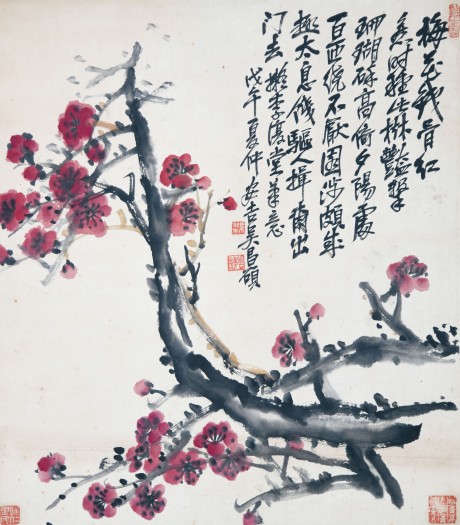 梅花鐵骨紅
舊時種此樹艷擊
珊瑚碎高倚夕陽處
百匝繞不厭園涉頗成
趣太息饑驅人揖爾出
門去擬李復堂筆意
戊午夏仲安吉吳昌碩